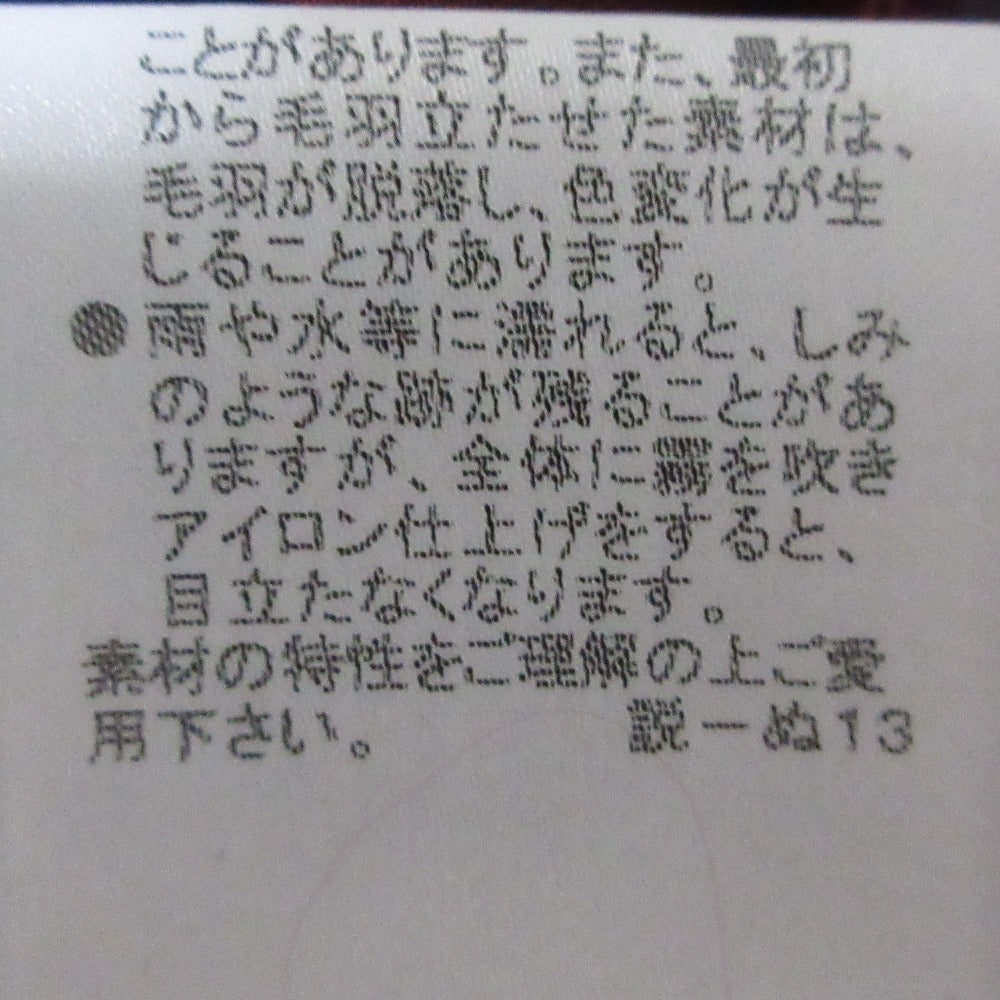 ことがあります。また、最初
から毛羽立たせた素材は、
毛羽が脱落し、色変化が生
じることがあります。
●雨や水等に濡れると、しみ
のような跡が残ることがあ
りますが、全体に霧を吹き
アイロン仕上げをすると、
目立たなくなります。
素材の特性をご理解の上ご愛
用下さい。 説ーぬ13